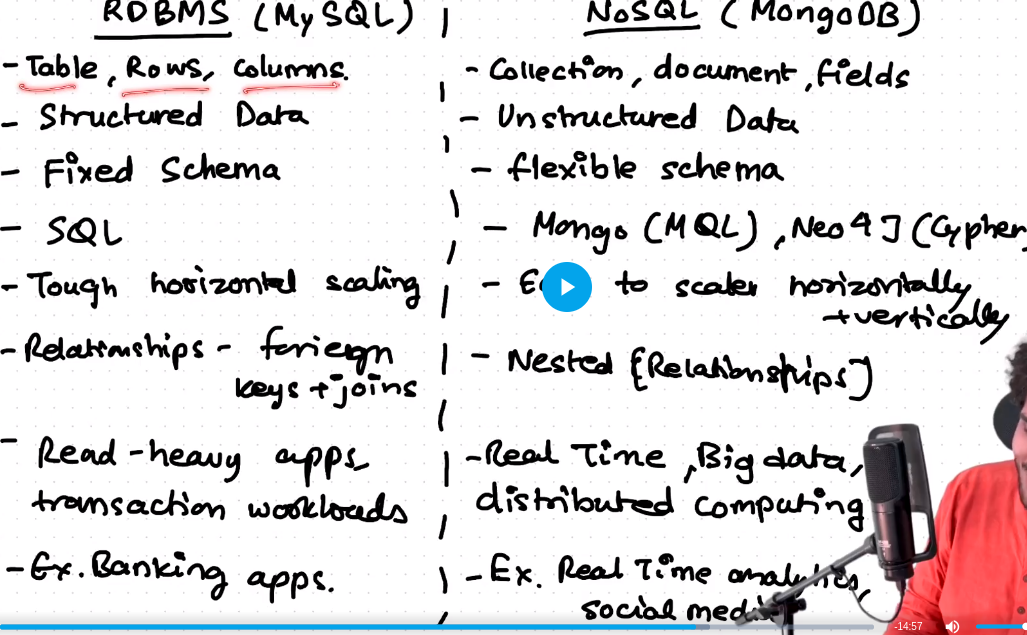 RDBMS (MySQL)
- Table, Rows, Columns.
- Structured Data
- Fixed Schema
- SQL
- Tough horizontal scaling
- Relationships - foriegn
keys + joins
- Read-heavy apps,
transaction workloads
- Ex. Banking apps.
NoSQL (MongoDB)
- Collection, document, fields
- Unstructured Data
- flexible schema
- Mongo (MQL), Neo4J (Cypher
- to scale horizontally
+ vertically
- Nested [Relationships]
- Real Time, Big data,
distributed computing
- Ex. Real Time analytics,
social media
-14:57